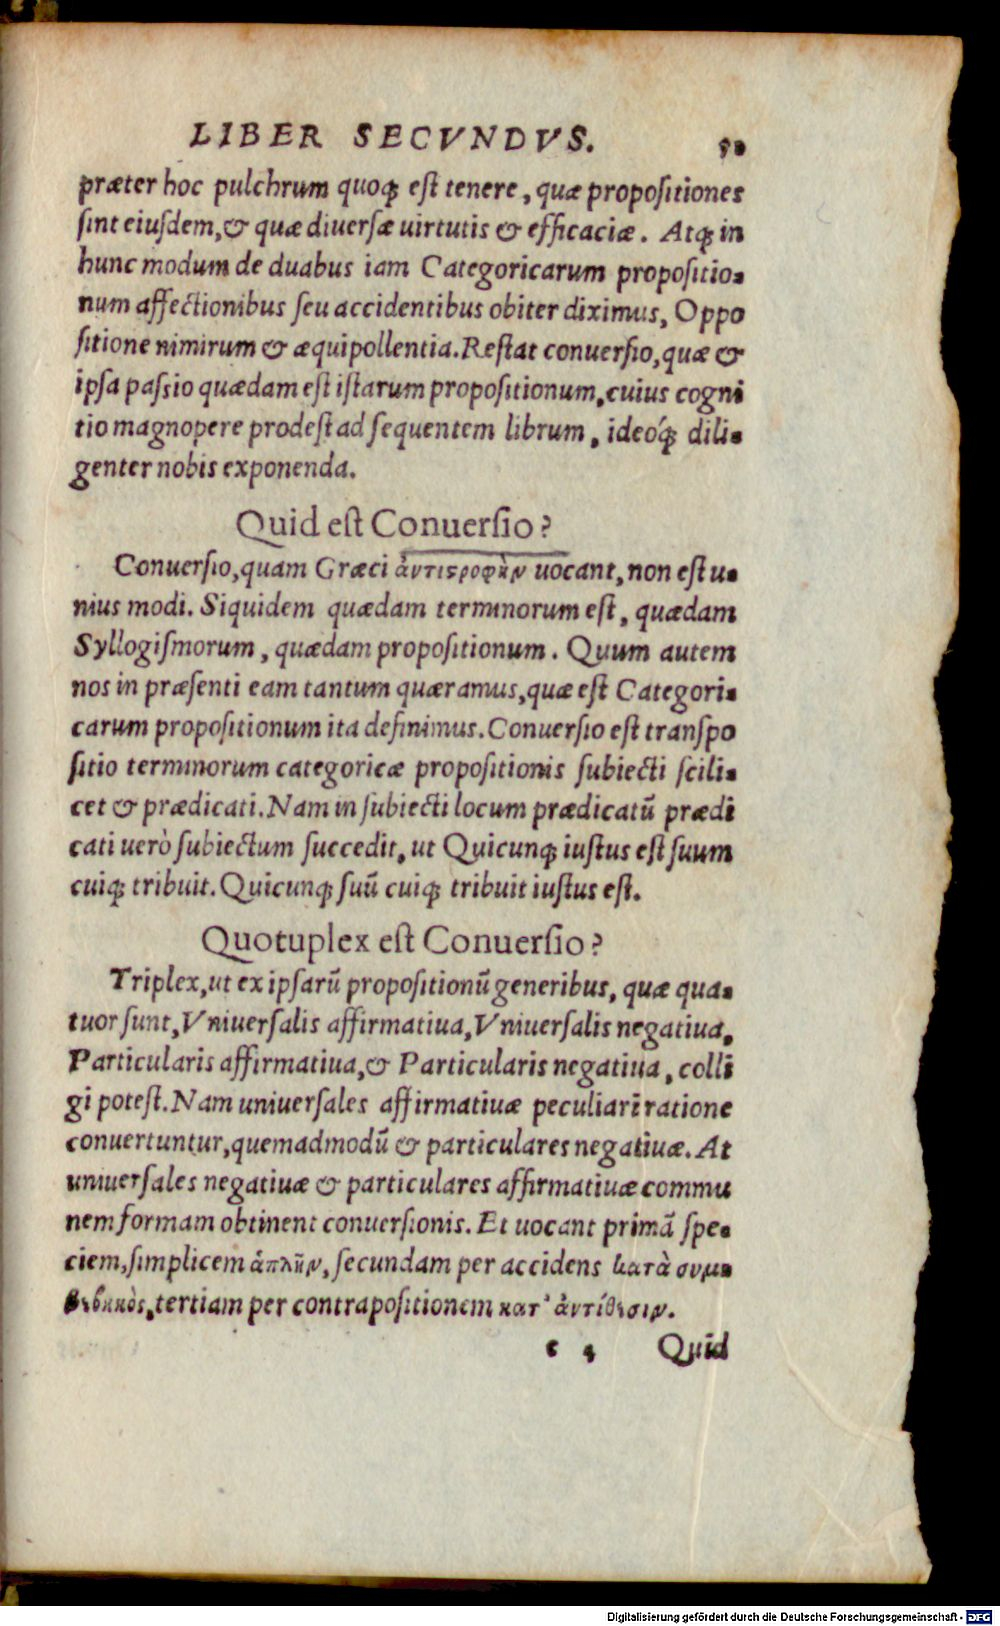 LIBER SECVNDVS.
præter hoc pulchrum quoqꝫ est tenere, quæ propositiones
sint eiusdem, & quæ diuersæ uirtutis & efficaciæ. Atqꝫ in
hunc modum de duabus iam Categoricarum propositio-
num affectionibus seu accidentibus obiter diximus, Oppo
sitione nimirum & æquipollentia. Restat conuersio, quæ &
ipsa passio quædam est istarum propositionum, cuius cogni
tio magnopere prodest ad sequentem librum, ideóqꝫ dili-
genter nobis exponenda.
Quid est Conuersio?
Conuersio, quam Græci ἀντιστροφὴν uocant, non est u-
nius modi. Siquidem quædam terminorum est, quædam
Syllogismorum, quædam propositionum. Quum autem
nos in præsenti eam tantum quæramus, quæ est Categori-
carum propositionum ita definimus. Conuersio est transpo
sitio terminorum categoricæ propositionis subiecti scili-
cet & prædicati. Nam in subiecti locum prædicatū prædi
cati uerò subiectum succedit, ut Quicunqꝫ iustus est suum
cuiqꝫ tribuit. Quicunqꝫ suū cuiqꝫ tribuit iustus est.
Quotuplex est Conuersio?
Triplex, ut ex ipsarū propositionū generibus, quæ qua-
tuor sunt, Vniuersalis affirmatiua, Vniuersalis negatiua,
Particularis affirmatiua, & Particularis negatiua, colli
gi potest. Nam uniuersales affirmatiuæ peculiari ratione
conuertuntur, quemadmodū & particulares negatiuæ. At
uniuersales negatiuæ & particulares affirmatiuæ commu
nem formam obtinent conuersionis. Et uocant primā spe-
ciem, simplicem ἁπλῆν, secundam per accidens κατὰ συμ-
βεβηκὸς, tertiam per contrapositionem κατ' ἀντίθεσιν.
Quid
Digitalisierung gefördert durch die Deutsche Forschungsgemeinschaft - DFG